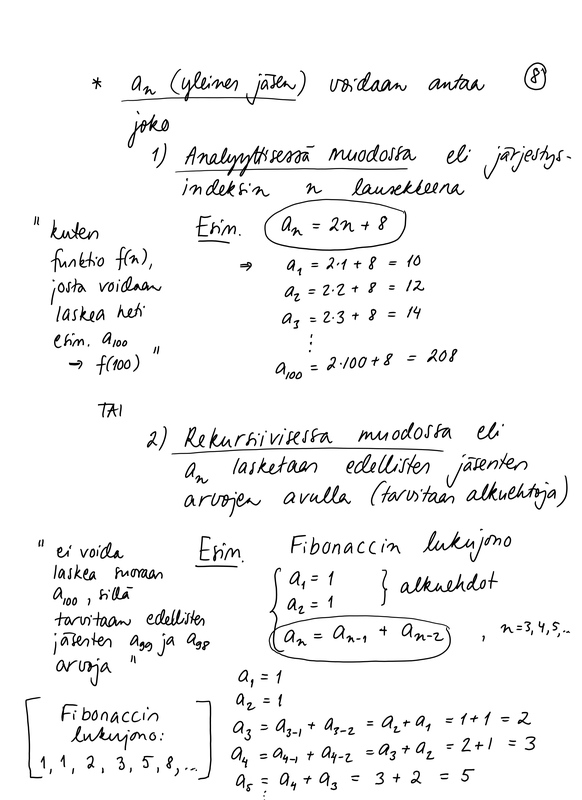 * aₙ (yleinen jäsen) voidaan antaa
8
joko
1) Analyyttisessä muodossa eli järjestys-
indeksin n lausekkeena
" kuten
funktio f(n),
josta voidaan
laskea heti
esim. a₁₀₀
→ f(100) "
Esim. aₙ = 2n + 8
⇒ a₁ = 2·1 + 8 = 10
a₂ = 2·2 + 8 = 12
a₃ = 2·3 + 8 = 14
⋮
a₁₀₀ = 2·100 + 8 = 208
TAI
2) Rekursiivisessa muodossa eli
aₙ lasketaan edellisten jäsenten
arvojen avulla (tarvitaan alkuehtoja)
" ei voida
laskea suoraan
a₁₀₀, sillä
tarvitaan edellisten
jäsenten a₉₉ ja a₉₈
arvoja "
Esim. Fibonaccin lukujono
{ a₁ = 1
a₂ = 1 } alkuehdot
aₙ = aₙ₋₁ + aₙ₋₂ , n=3,4,5,...
a₁ = 1
a₂ = 1
a₃ = a₃₋₁ + a₃₋₂ = a₂ + a₁ = 1+1 = 2
a₄ = a₄₋₁ + a₄₋₂ = a₃ + a₂ = 2+1 = 3
a₅ = a₄ + a₃ = 3 + 2 = 5
⋮
[ Fibonaccin
lukujono:
1, 1, 2, 3, 5, 8, ... ]